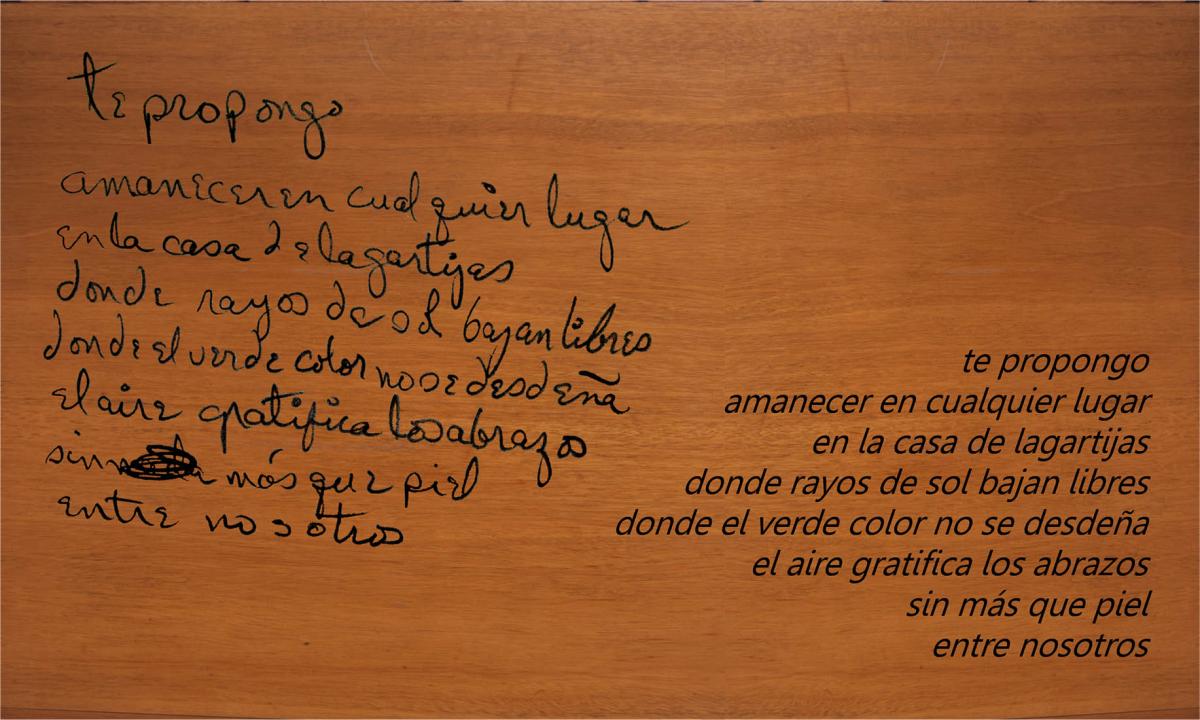 te propongo
amanecer en cualquier lugar
en la casa de lagartijas
donde rayos de sol bajan libres
donde el verde color no se desdeña
el aire gratifica los abrazos
sin más que piel
entre nosotros
te propongo
amanecer en cualquier lugar
en la casa de lagartijas
donde rayos de sol bajan libres
donde el verde color no se desdeña
el aire gratifica los abrazos
sin más que piel
entre nosotros